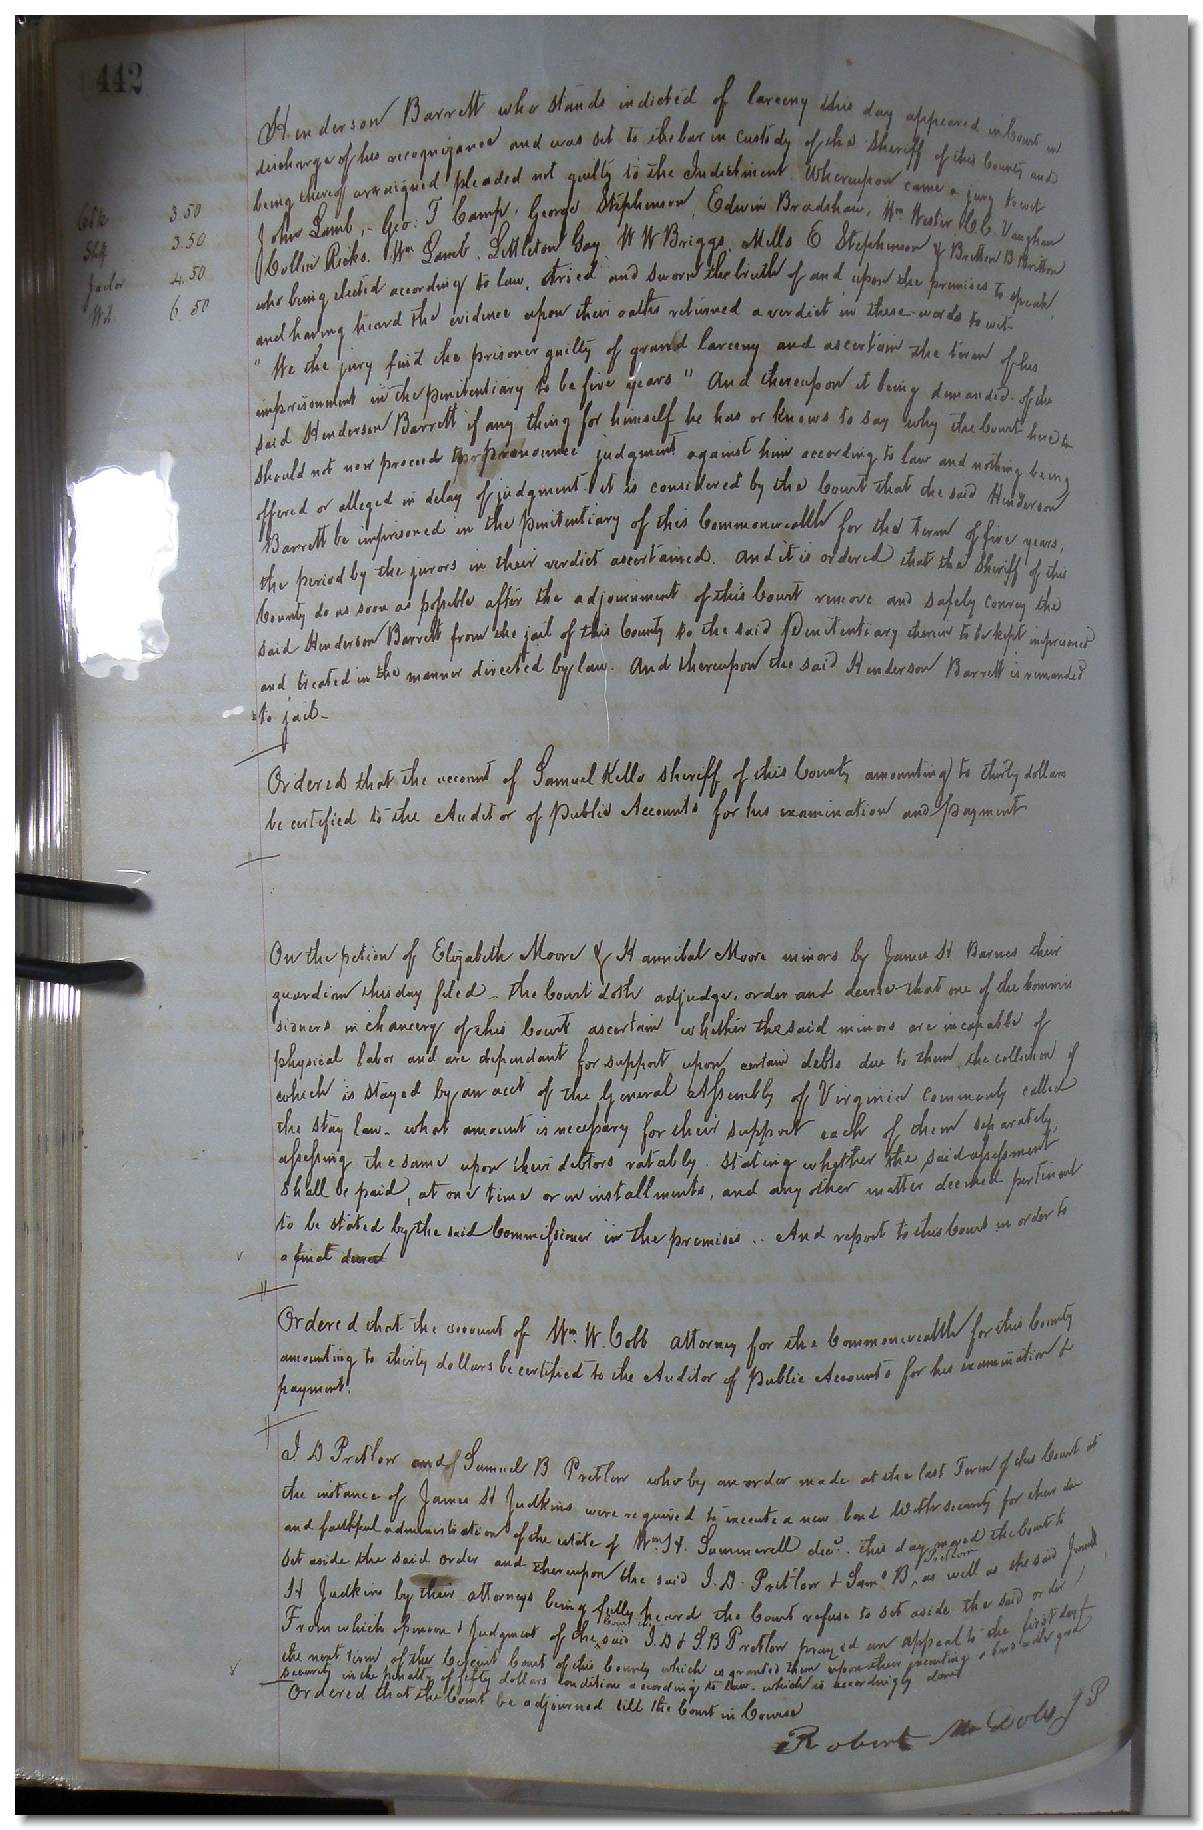 442
Henderson Barrett who stands indicted of larceny this day appeared in Court in
discharge of his recognizance and was set to the bar in custody of the Sheriff of this County and
being thereof arraigned pleaded not guilty to the Indictment. Whereupon came a jury to wit
Clk 3.50
John Lamb, Geo. T Camp, George Stephenson, Edwin Bradshaw, Wm Wester, C.C. Vaughan
Shff 3.50
Collin Ricks, Wm Lamb, Littleton Gay, W W Briggs, Mills E Stephenson & Britton B Britton
Jailor 4.50
who being elected according to law, tried and sworn the truth of and upon the premises to speak,
Wt 6.50
and having heard the evidence upon their oaths returned a verdict in these words to wit
" We the jury find the prisoner guilty of grand larceny and ascertain the term of his
imprisonment in the penitentiary to be five years" And thereupon it being demanded of the
said Henderson Barrett if any thing for himself he has or knows to say why the Court here
should not now proceed to pronounce judgment against him according to law and nothing being
offered or alleged in delay of judgment it is considered by the Court that the said Henderson
Barrett be imprisoned in the Penitentiary of this Commonwealth for the term of five years,
the period by the jurors in their verdict ascertained. And it is ordered that the Sheriff of this
County do as soon as possible after the adjournment of this Court remove and safely convey the
said Henderson Barrett from the jail of this County to the said Penitentiary therein to be kept imprisoned
and treated in the manner directed by law. And thereupon the said Henderson Barrett is remanded
to jail-
Ordered that the account of Samuel Kello Sheriff of this County amounting to thirty dollars
be certified to the Auditor of Public Accounts for his examination and payment
On the petion of Elizabeth Moore & Hannibal Moore minors by James H Barnes their
guardian this day filed - the Court doth adjudge, order and decree that one of the Commis
sioners in chancery of this Court ascertain whether the said minors are incapable of
physical labor and are dependant for support upon certain debts due to them, the collection of
which is stayed by an act of the General Assembly of Virginia commonly called
the stay law - what amount is necessary for their support each of them separately,
assessing the same upon their debtors ratably. Stating whether the said assessment
shall be paid, at one time or in installments, and any other matter deemed pertinent
to be stated by the said Commissioner in the premises .. And report to this Court in order to
a final decree
Ordered that the account of Wm. W. Cobb attorney for the Commonwealth for this County
amounting to thirty dollars be certified to the Auditor of Public Accounts for his examination &
payment.
J D Pretlow and Samuel B Pretlow who by an order made at the last Term of this Court at
the instance of James H Judkins were required to execute a new bond with security for their due
and faithful administration of the estate of Wm H. Summerell decd. this day moved the Court to
set aside the said order and thereupon the said J. D. Pretlow & Saml B, Pretlow as well as the said James
H Judkins by their attorneys being fully heard the Court refuse to set aside the said order
From which opinion & judgment of the Court the said J D & S. B Pretlow prayed an appeal to the first day of
the next term of the Circuit Court of this County which is granted them upon their executing a bond with good
security in the penalty of fifty dollars conditioned according to law. which is accordingly done
Ordered that the Court be adjourned till the Court in Course
Robert
J P